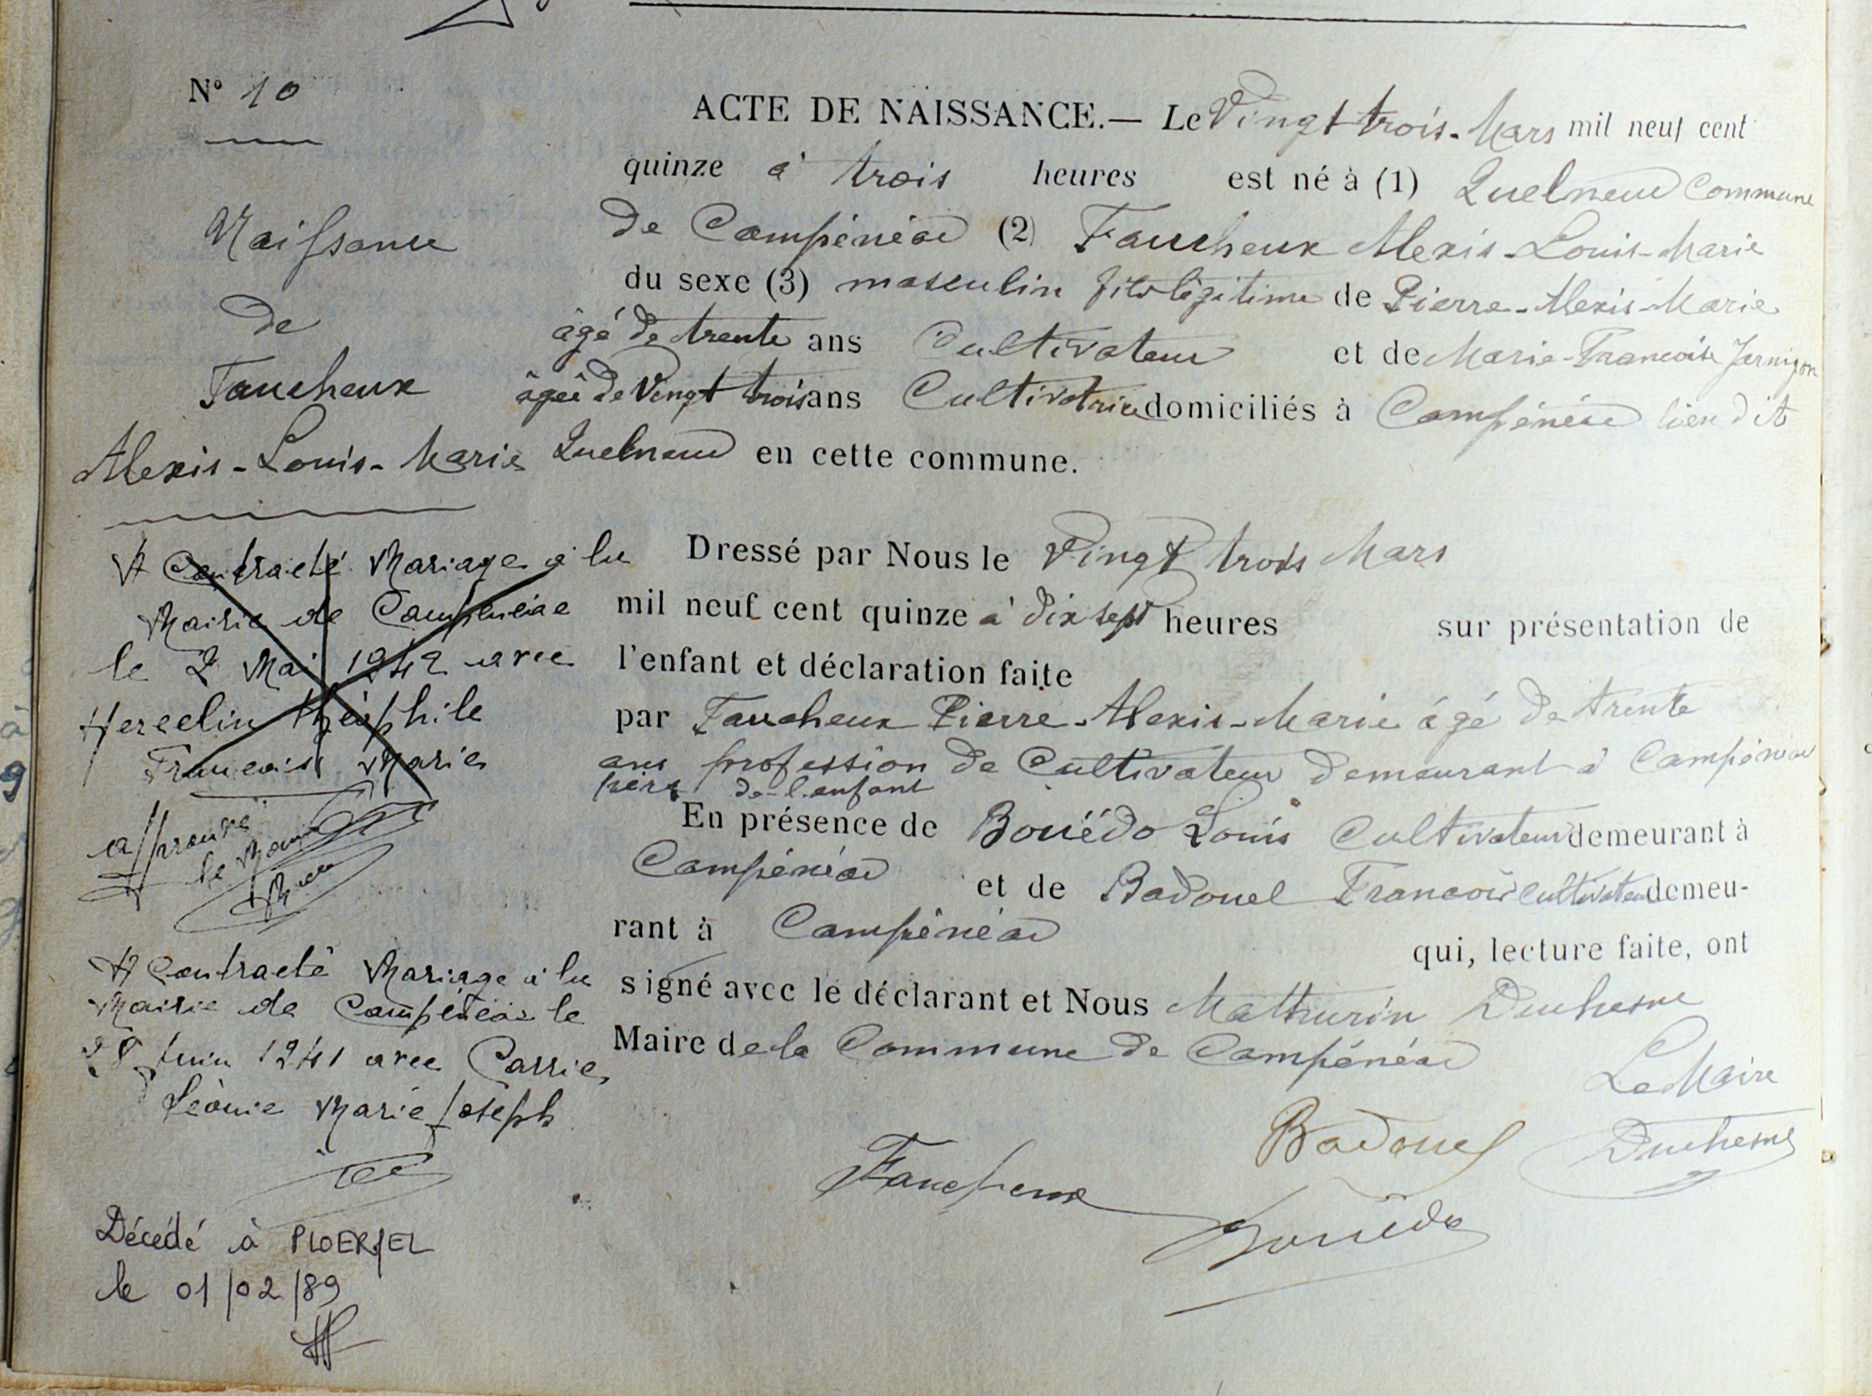 N° 10
Naissance
de
Faucheux
Alexis-Louis-Marie
A Contracté Mariage à la
Mairie de Campénéac
le 2 Mai 1942 avec
Hercelin Théophile
François Marie
approuvé
le Maire
A Contracté Mariage à la
Mairie de Campénéac le
28 Juin 1941 avec Carrie
Léonie Marie Joseph
Décédé à PLOERMEL
le 01/02/89
ACTE DE NAISSANCE.— Le Vingt trois Mars mil neuf cent
quinze à trois heures est né à (1) Quelneuc Commune
de Campénéac (2) Faucheux Alexis-Louis-Marie
du sexe (3) masculin fils légitime de Pierre-Alexis-Marie
âgé de trente ans Cultivateur et de Marie-Francoise Jarnigon
âgée de Vingt trois ans Cultivatrice domiciliés à Campénéac lieu dit
Quelneuc en cette commune.
Dressé par Nous le Vingt trois Mars
mil neuf cent quinze à dix sept heures sur présentation de
l'enfant et déclaration faite
par Faucheux Pierre-Alexis-Marie âgé de trente
ans profession de Cultivateur demeurant à Campénéac
père de l'enfant
En présence de Bouëdo Louis Cultivateur demeurant à
Campénéac et de Badouel Francois Cultivateur demeu-
rant à Campénéac qui, lecture faite, ont
signé avec le déclarant et Nous Mathurin Duchesne
Maire de la Commune de Campénéac
Le Maire
Badouel Duchesne
Faucheux
Bouëdo